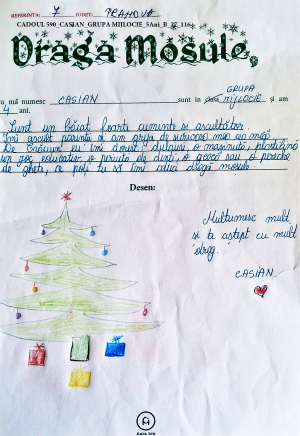 REFERINTA: 7 JUDET: PRAHOVA
CADOUL 590_CASIAN_GRUPA MIJLOCIE_5Ani_B_27_116
Dragă Moșule,
GRUPA
u mă numesc CASIAN sunt în clasa MIJLOCIE și am
4 ani.
Sunt un băiat foarte cuminte și ascultător.
Îmi ascult părinții și am grijă de surioara mea cea mică.
De Crăciun eu îmi doresc dulciuri, o mașinuță, plastilină
un joc educativ, o periuță de dinți, o geacă sau o pereche
de ghete, ce poți tu să îmi aduci dragă moșule.
Desen:
Mulțumesc mult
și te aștept cu mult
drag.
CASIAN
Aura Ion